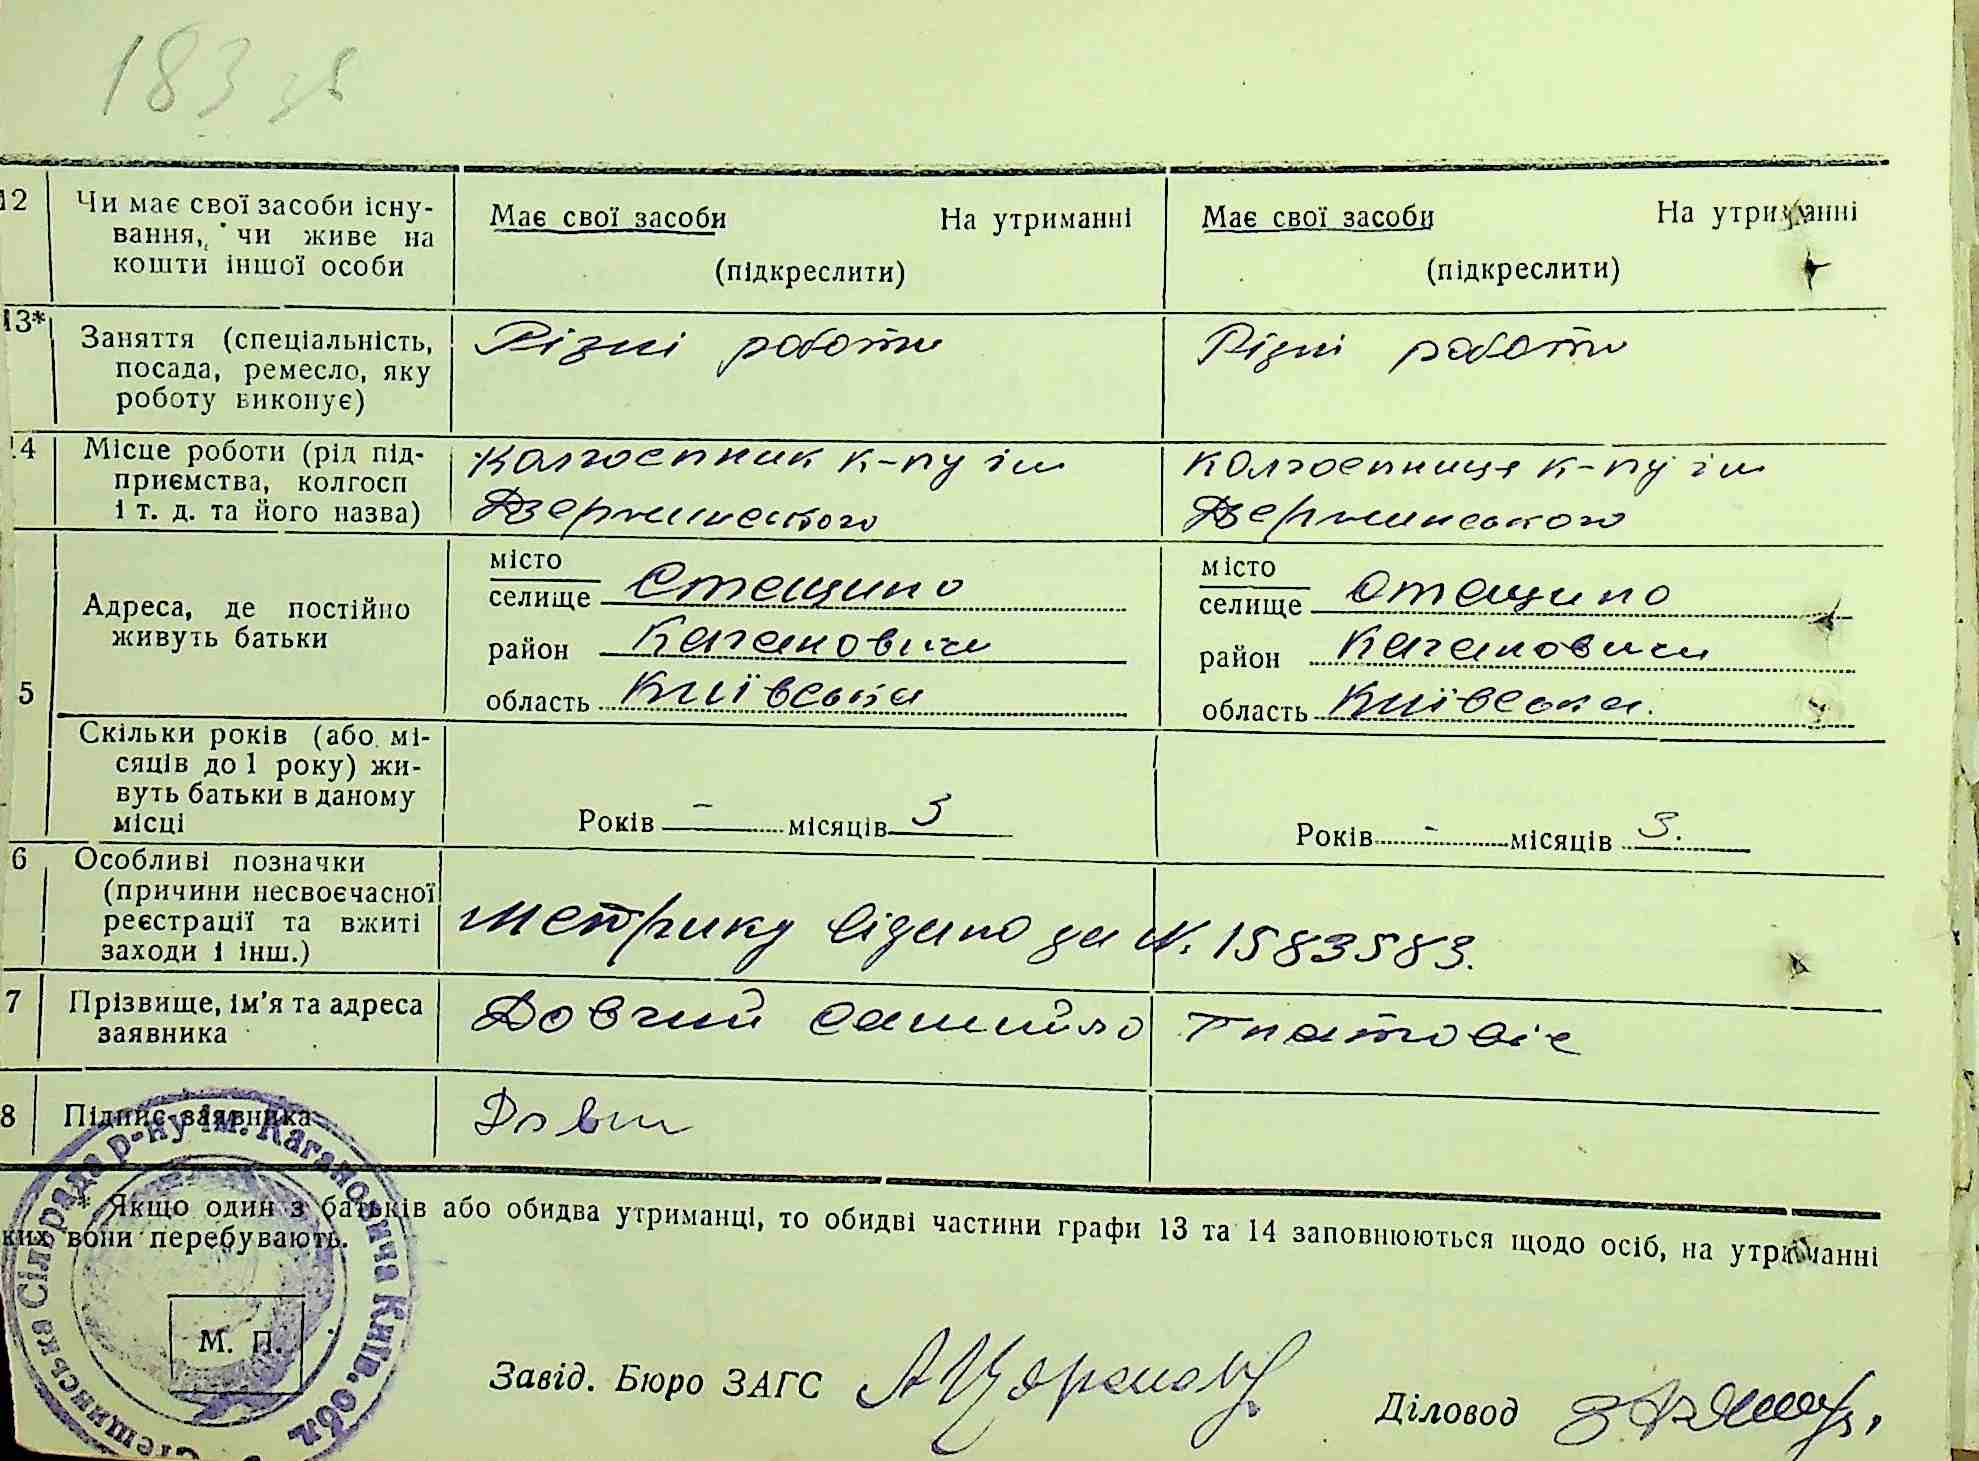 183 зв
12 Чи має свої засоби існу-
вання, чи живе на
кошти іншої особи
Має свої засоби На утриманні
(підкреслити)
Має свої засоби На утриманні
(підкреслити)
13* Заняття (спеціальність,
посада, ремесло, яку
роботу виконує)
Різні роботи
Різні роботи
14 Місце роботи (рід під-
приємства, колгосп
і т. д. та його назва)
Колгоспник к-пу ім
Дзержинского
Колгоспниця к-пу ім
Дзержинського
5 Адреса, де постійно
живуть батьки
місто
селище Стещино
район Кагановичи
область Київська
місто
селище Стещино
район Кагановичи
область Київська.
Скільки років (або мі-
сяців до 1 року) жи-
вуть батьки в даному
місці
Років - місяців 3
Років - місяців 3.
6 Особливі позначки
(причини несвоєчасної
реєстрації та вжиті
заходи і інш.)
Метрику видано за №. 1583583.
7 Прізвище, ім'я та адреса
заявника
Довгий Самийло Гнатовіс
8 Підпис заявника
Довги
* Якщо один з батьків або обидва утриманці, то обидві частини графи 13 та 14 заповнюються щодо осіб, на утриманні
ких вони перебувають.
Стещинська Сільрада р-ну ім. Кагановича Київ. обл.
М. П.
Завід. Бюро ЗАГС
Діловод